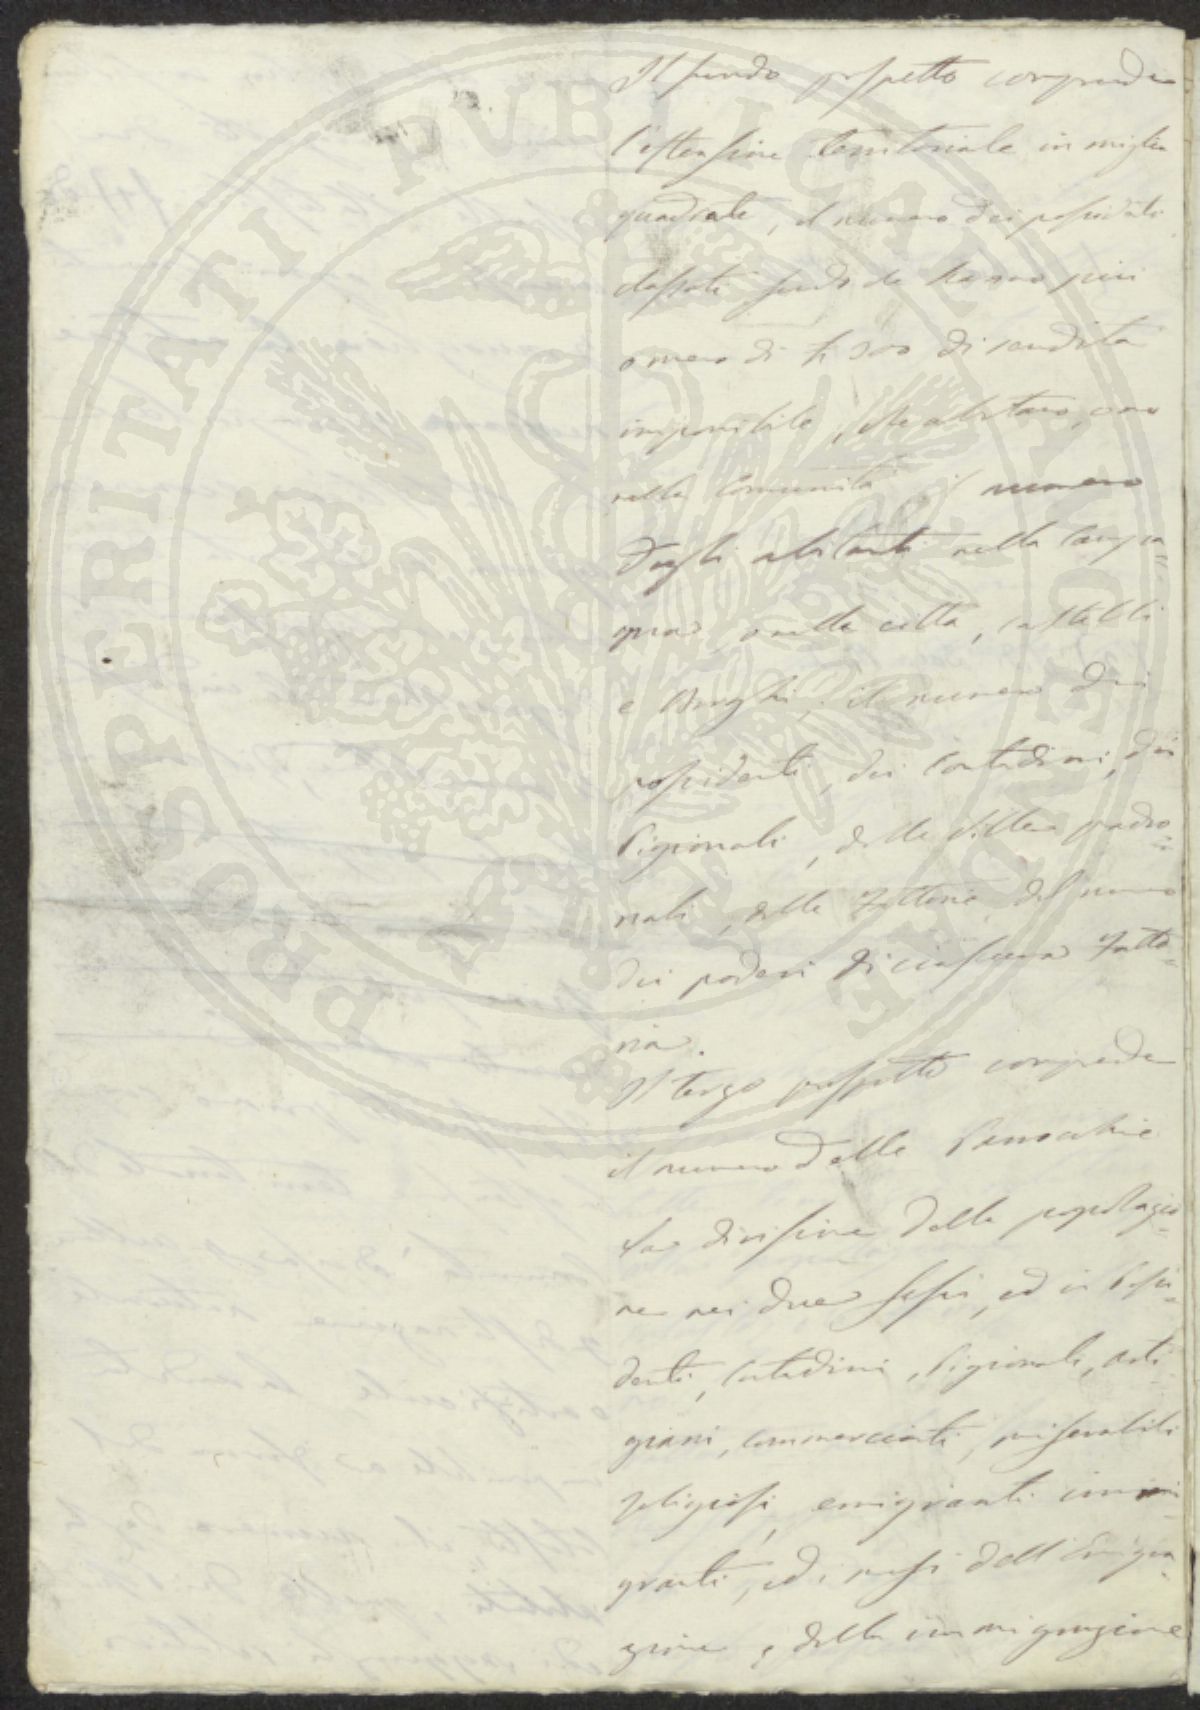 Il secondo prospetto comprende
l'estensione territoriale in miglia
quadrate, il numero dei possidenti
classati secondo che hanno più
o meno di £ 300 di rendita
imponibile, che abitano, o no
nella Comunità, il numero
degli abitanti nella campa=
gna, o nelle città, castelli
e Borghi, il numero dei
possidenti, dei Contadini, dei
Pigionali, delle ville padro=
nali, delle Fattorie, del numero
dei poderi di ciascuna Fatto=
ria.
Il terzo prospetto comprende
il numero delle Parrocchie
la divisione della popolazio=
ne nei due sessi, ed in Possi=
denti, Contadini, Pigionali, arti=
giani, commercianti, miserabili
religiosi, emigranti immi=
granti, ed i mesi dell'Emigra=
zione, e della immigrazione
PROSPERITATI PUBLICAE AUGENDAE